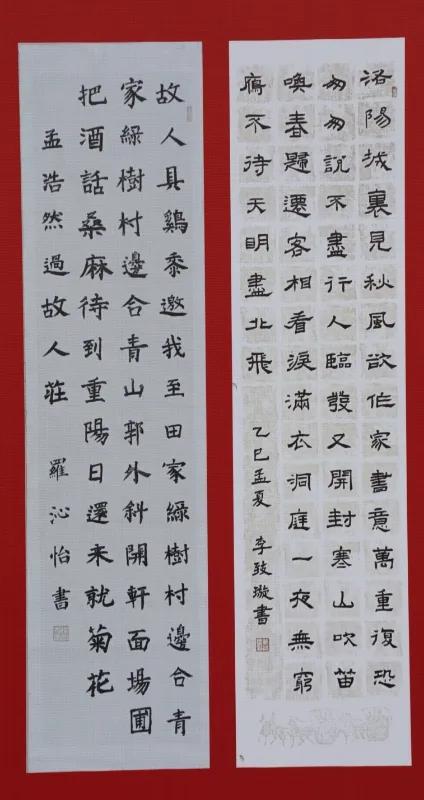 洛陽城裏見秋風欲作家書意萬重復恐
匆匆說不盡行人臨發又開封塞山吹笛
喚春歸遷客相看淚滿衣洞庭一夜無窮
鴈不待天明盡北飛
乙巳孟夏 李璇書
故人具鷄黍邀我至田家綠樹村邊合青
家綠樹村邊合青山郭外斜開軒面場圃
把酒話桑麻待到重陽日還来就菊花
孟浩然過故人莊 羅沁怡書